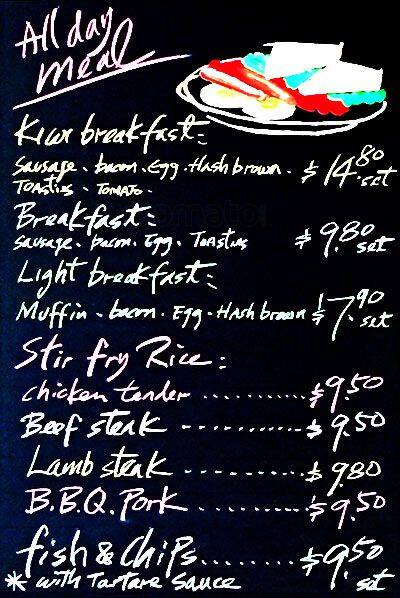 All day
meal
Kiwi breakfast:
Sausage. bacon. Egg. Hash brown. $14.80 set
Toasties. Tomato.
Breakfast:
Sausage. bacon. Egg. Toasties $9.80 set
Light breakfast:
Muffin. bacon. Egg. Hash brown $7.90 set
Stir fry Rice:
chicken tender .......... $9.50
Beef steak ---------- $9.50
Lamb steak ---------- $9.80
B.B.Q. Pork ---------- $9.50
fish & Chips........ $9.50 set
* with Tartare Sauce